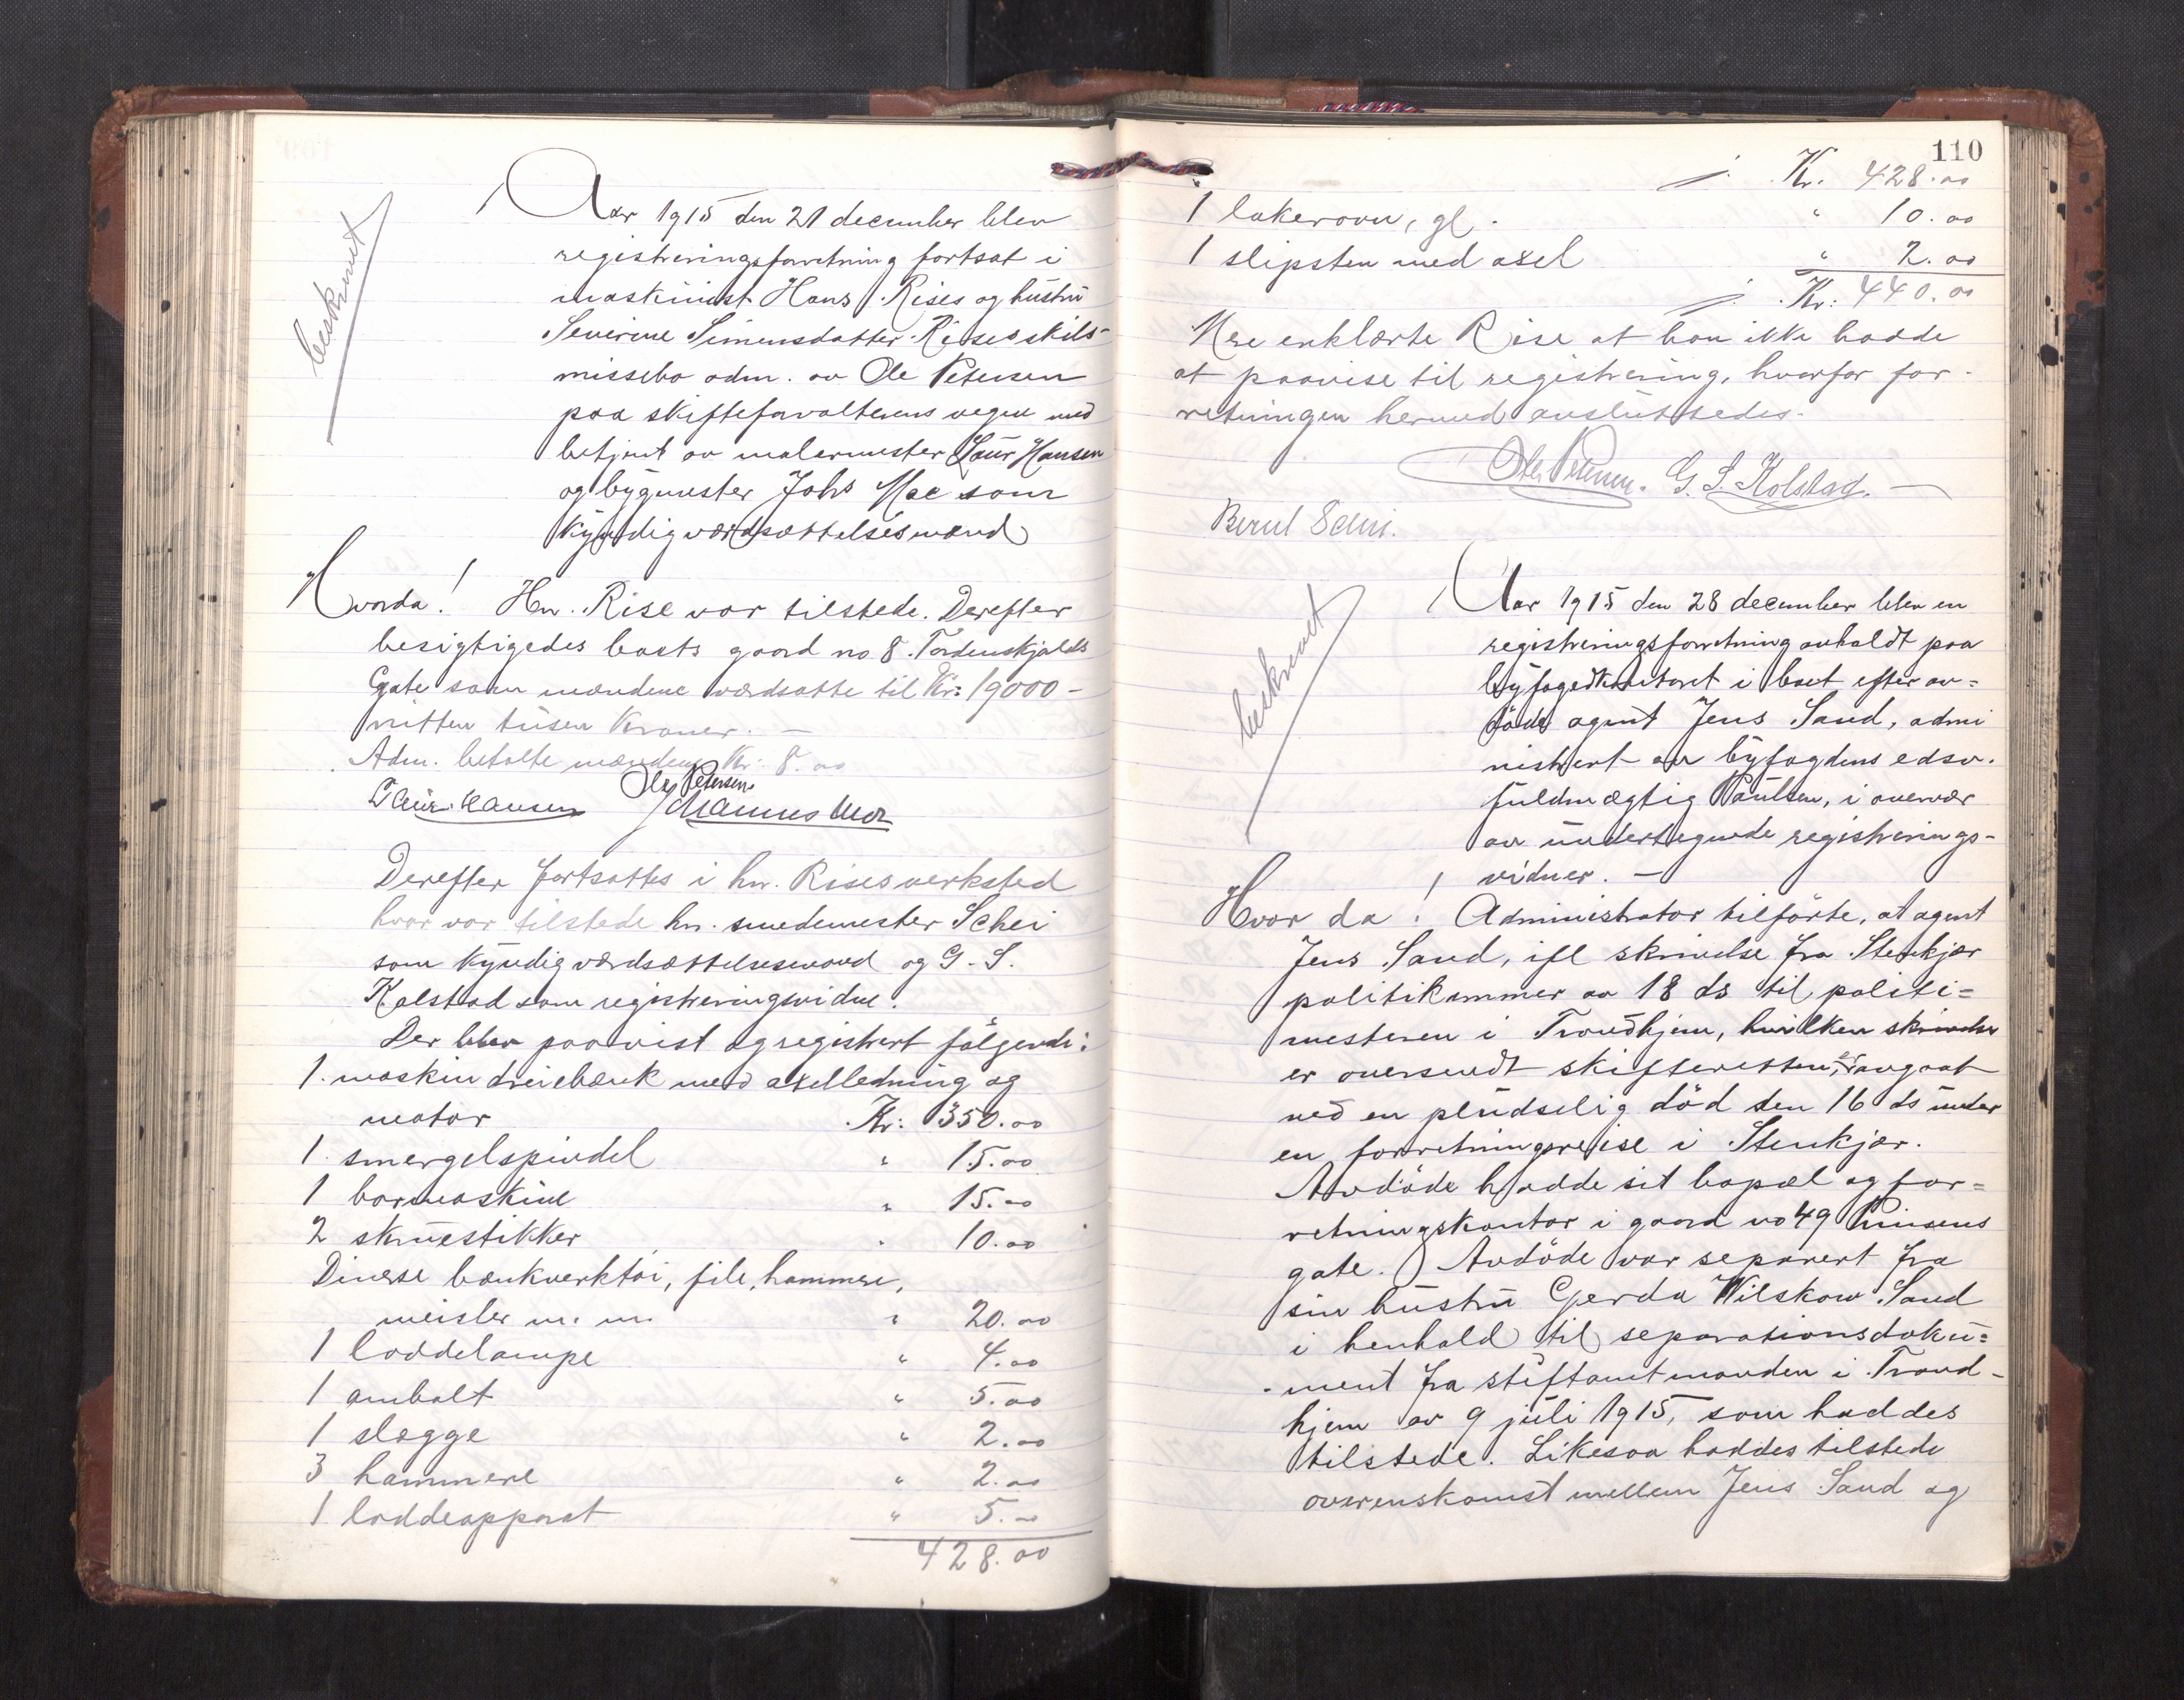 beskrevet
Aar 1915 den 21 december blev
registreringsforretning fortsat i
maskinist Hans Rises og hustru
Severine Simensdatter Rises skils-
missebo adm. av Ole Petersen
paa skifteforvalterens vegne med
betjent av malermester Laur Hansen
og bygmester Johs Moe som
kyndig værdsættelsesmænd
Hvorda! Hr. Rise var tilstede. Derefter
besigtigedes boets gaard no 8 Tordenskjolds
Gate som mændene værdsatte til Kr: 19000-
nitten tusen Kroner. -
Adm. betalte mændene Kr: 8.00
Ole Petersen
Laur. Hansen Johannes Moe
Derefter fortsattes i hr. Rises verksted
hvor var tilstede hr. smedemester Schei
som kyndig værdsættelsesmand og G. S.
Kolstad som registreringsvidne.
Der blev paavist og registrert følgende:
1 maskin dreiebænk med axelledning og
motor Kr: 350.00
1 smergelspindel " 15.00
1 bormaskine " 15.00
2 skruestikker " 10.00
Diverse bænkverktøi, file, hammere,
meisler m. m. " 20.00
1 loddelampe " 4.00
1 ambolt " 5.00
1 slægge " 2.00
3 hammere " 2.00
1 loddeapparat " 5.00
428.00
110
Kr. 428.00
1 lakerovn, gl. " 10.00
1 slipsten med axel " 2.00
Kr: 440.00
Mere erklærte Rise at han ikke hadde
at paavise til registrering, hvorfor for-
retningen hermed avsluttedes.
Ole Petersen. G. S. Kolstad. -
Bernt Schei.
beskrevet
Aar 1915 den 28 december blev en
registreringsforretning avholdt paa
byfogedkontoret i boet efter av=
døde agent Jens Sand, admi
nistrert av byfogdens edsv.
fuldmægtig Paulsen, i overvær
av undertegnede registrerings-
vidner. -
Hvor da! Administrator tilførte, at agent
Jens Sand, ifl skrivelse fra Stenkjær
politikammer av 18 ds til politi=
mesteren i Trondhjem, hvilken skrivelse
er oversendt skifteretten, er avgaat
ved en pludselig død den 16 ds under
en forretningsreise i Stenkjær.
Avdøde hadde sit bopæl og for=
retningskontor i gaard no 49 Prinsens
gate. Avdøde var separert fra
sin hustru Gerda Wilskow Sand
i henhold til separationsdoku=
ment fra stiftamtmanden i Trond-
hjem av 9 juli 1915, som haddes
tilstede. Likesaa haddes tilstede
overenskomst mellem Jens Sand og